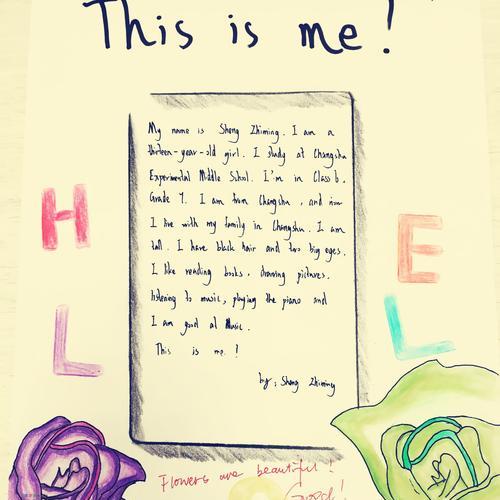 This is me!
My name is Sheng Zhiming. I am a
thirteen-year-old girl. I study at Changshu
Experimental Middle School. I'm in Class 6,
Grade 7. I am from Changshu, and now
I live with my family in Changshu. I am
tall. I have black hair and two big eyes.
I like reading books, drawing pictures,
listening to music, playing the piano and
I am good at Music.
This is me!
by: Sheng Zhiming
H
E
L
L
Flowers are beautiful!
Good!